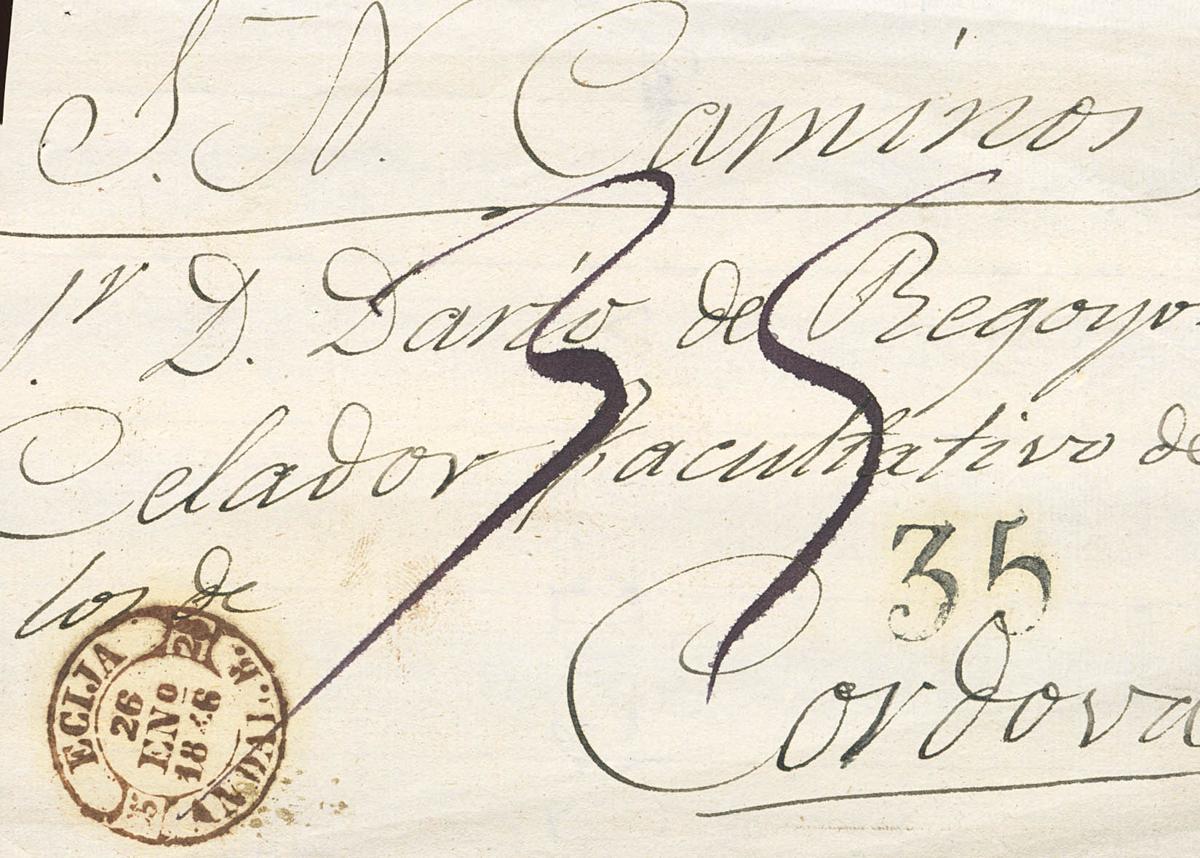 S. N. Caminos
Sr. D. Darío de Regoyos
Celador facultativo de
los de
Cordova
35
35
ECIJA
26
ENO
1846
ANDAL. B.